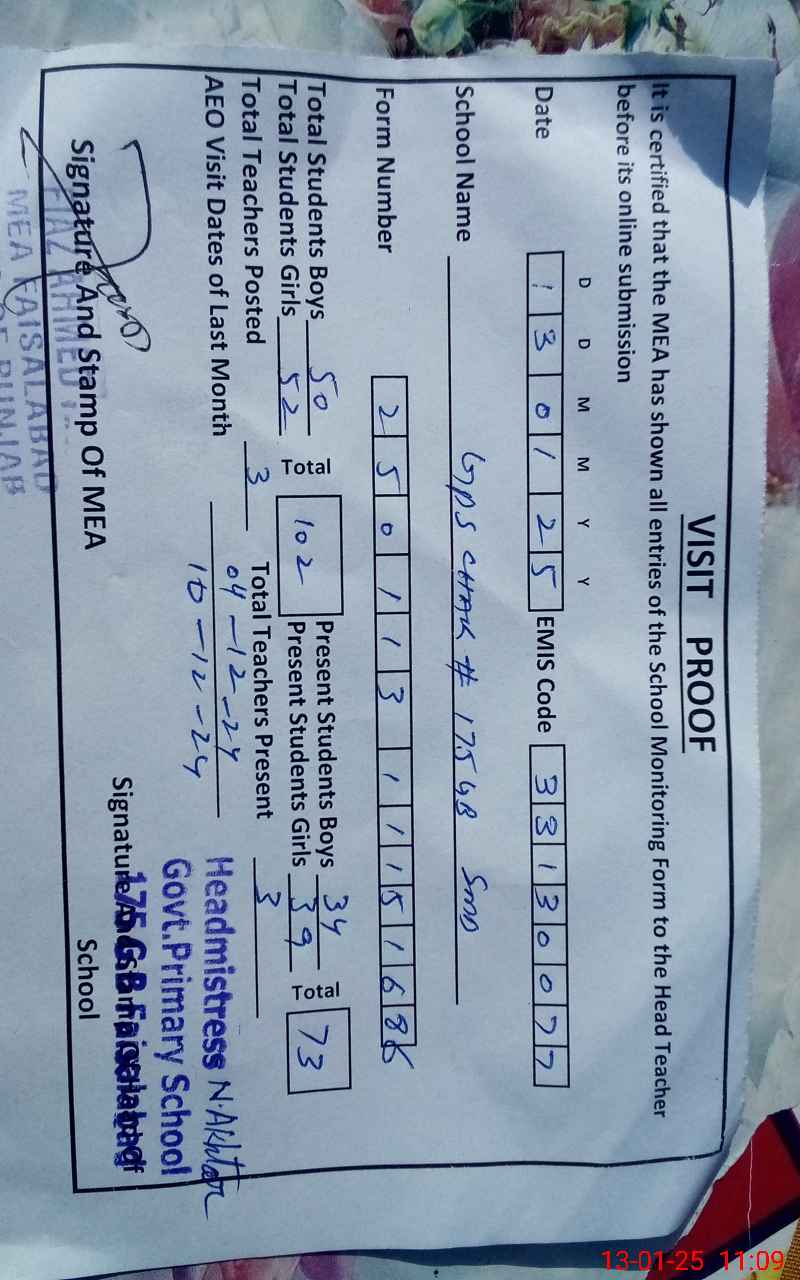 VISIT PROOF
It is certified that the MEA has shown all entries of the School Monitoring Form to the Head Teacher
before its online submission
D D M M Y Y
Date 1 3 0 1 2 5 EMIS Code 3 3 1 3 0 0 7 7
School Name GPS CHAK # 175 GB SMD
Form Number 2 5 0 1 1 3 1 1 1 5 1 6 8
Total Students Boys 50 Total 102 Present Students Boys 34 Total 73
Total Students Girls 52 Present Students Girls 39
Total Teachers Posted 3 Total Teachers Present 3
AEO Visit Dates of Last Month 04-12-24
10-12-24
Headmistress N.Akhtar
Govt.Primary School
175 G.B Faisalabad
Signature And Stamp Of MEA
School
AHMED
MEA FAISALABAD
OF PUNJAB
13-01-25 11:09